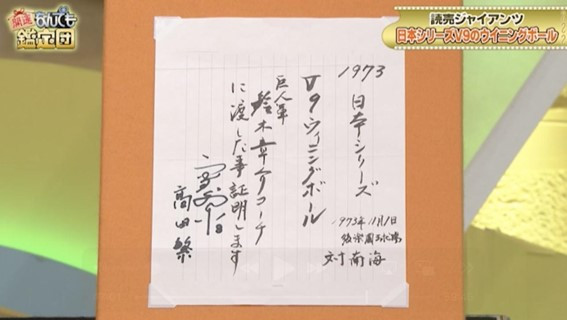 開運なんでも鑑定団
読売ジャイアンツ
日本シリーズV9のウイニングボール
1973 日本シリーズ
V9ウィニングボール
巨人軍
鈴木章介コーチ
に渡した事証明します
高田繁
1973年11月1日
後楽園球場
対南海